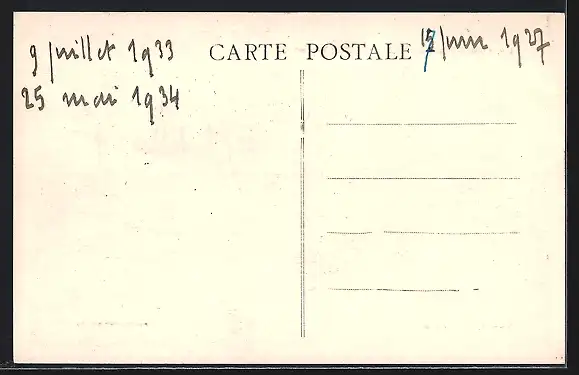 9 juillet 1933
25 mai 1934
CARTE POSTALE
juin 1927